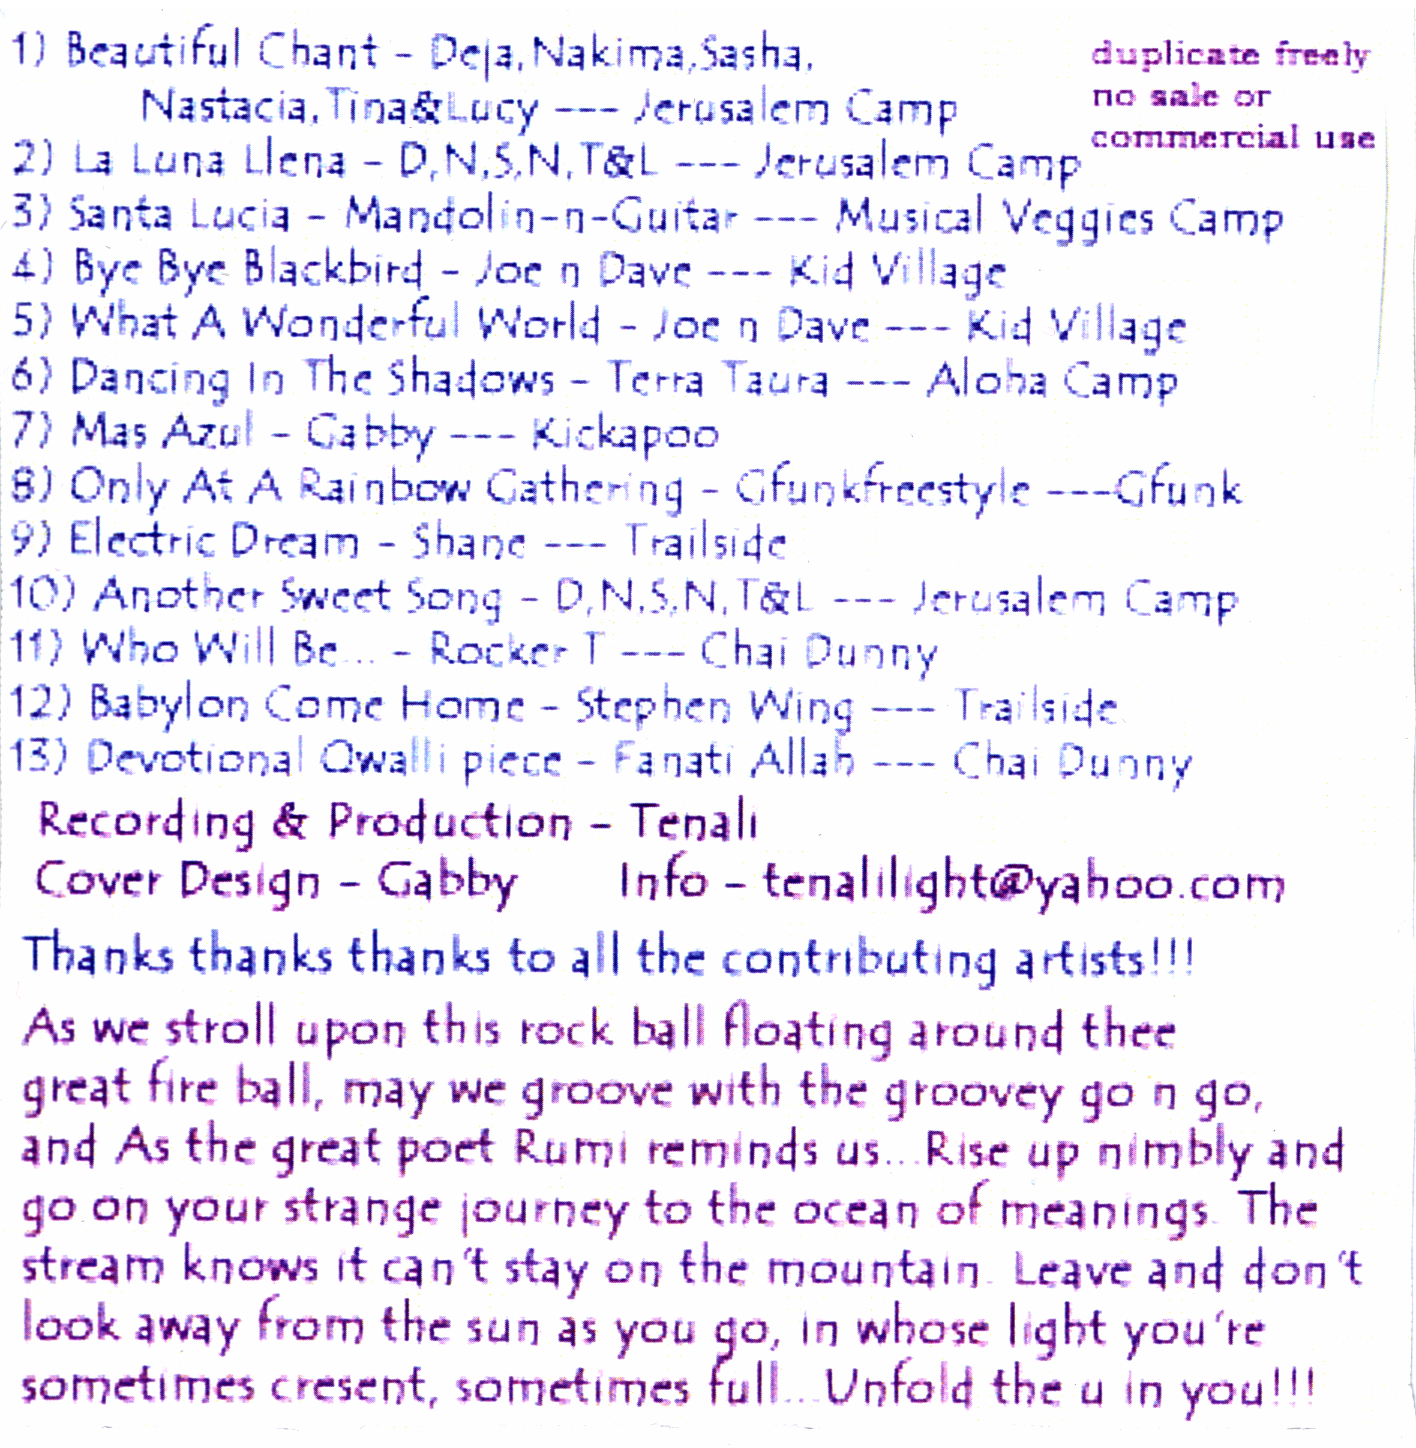 1) Beautiful Chant - Deja,Nakima,Sasha,
Nastacia,Tina&Lucy --- Jerusalem Camp
duplicate freely
no sale or
commercial use
2) La Luna Llena - D,N,S,N,T&L --- Jerusalem Camp
3) Santa Lucia - Mandolin-n-Guitar --- Musical Veggies Camp
4) Bye Bye Blackbird - Joe n Dave --- Kid Village
5) What A Wonderful World - Joe n Dave --- Kid Village
6) Dancing In The Shadows - Terra Taura --- Aloha Camp
7) Mas Azul - Gabby --- Kickapoo
8) Only At A Rainbow Gathering - Gfunkfreestyle ---Gfunk
9) Electric Dream - Shane --- Trailside
10) Another Sweet Song - D,N,S,N,T&L --- Jerusalem Camp
11) Who Will Be... - Rocker T --- Chai Dunny
12) Babylon Come Home - Stephen Wing --- Trailside
13) Devotional Qwalli piece - Fanati Allah --- Chai Dunny
Recording & Production - Tenali
Cover Design - Gabby Info - tenalilight@yahoo.com
Thanks thanks thanks to all the contributing artists!!!
As we stroll upon this rock ball floating around thee
great fire ball, may we groove with the groovey go n go,
and As the great poet Rumi reminds us...Rise up nimbly and
go on your strange journey to the ocean of meanings. The
stream knows it can't stay on the mountain. Leave and don't
look away from the sun as you go, in whose light you're
sometimes cresent, sometimes full...Unfold the u in you!!!